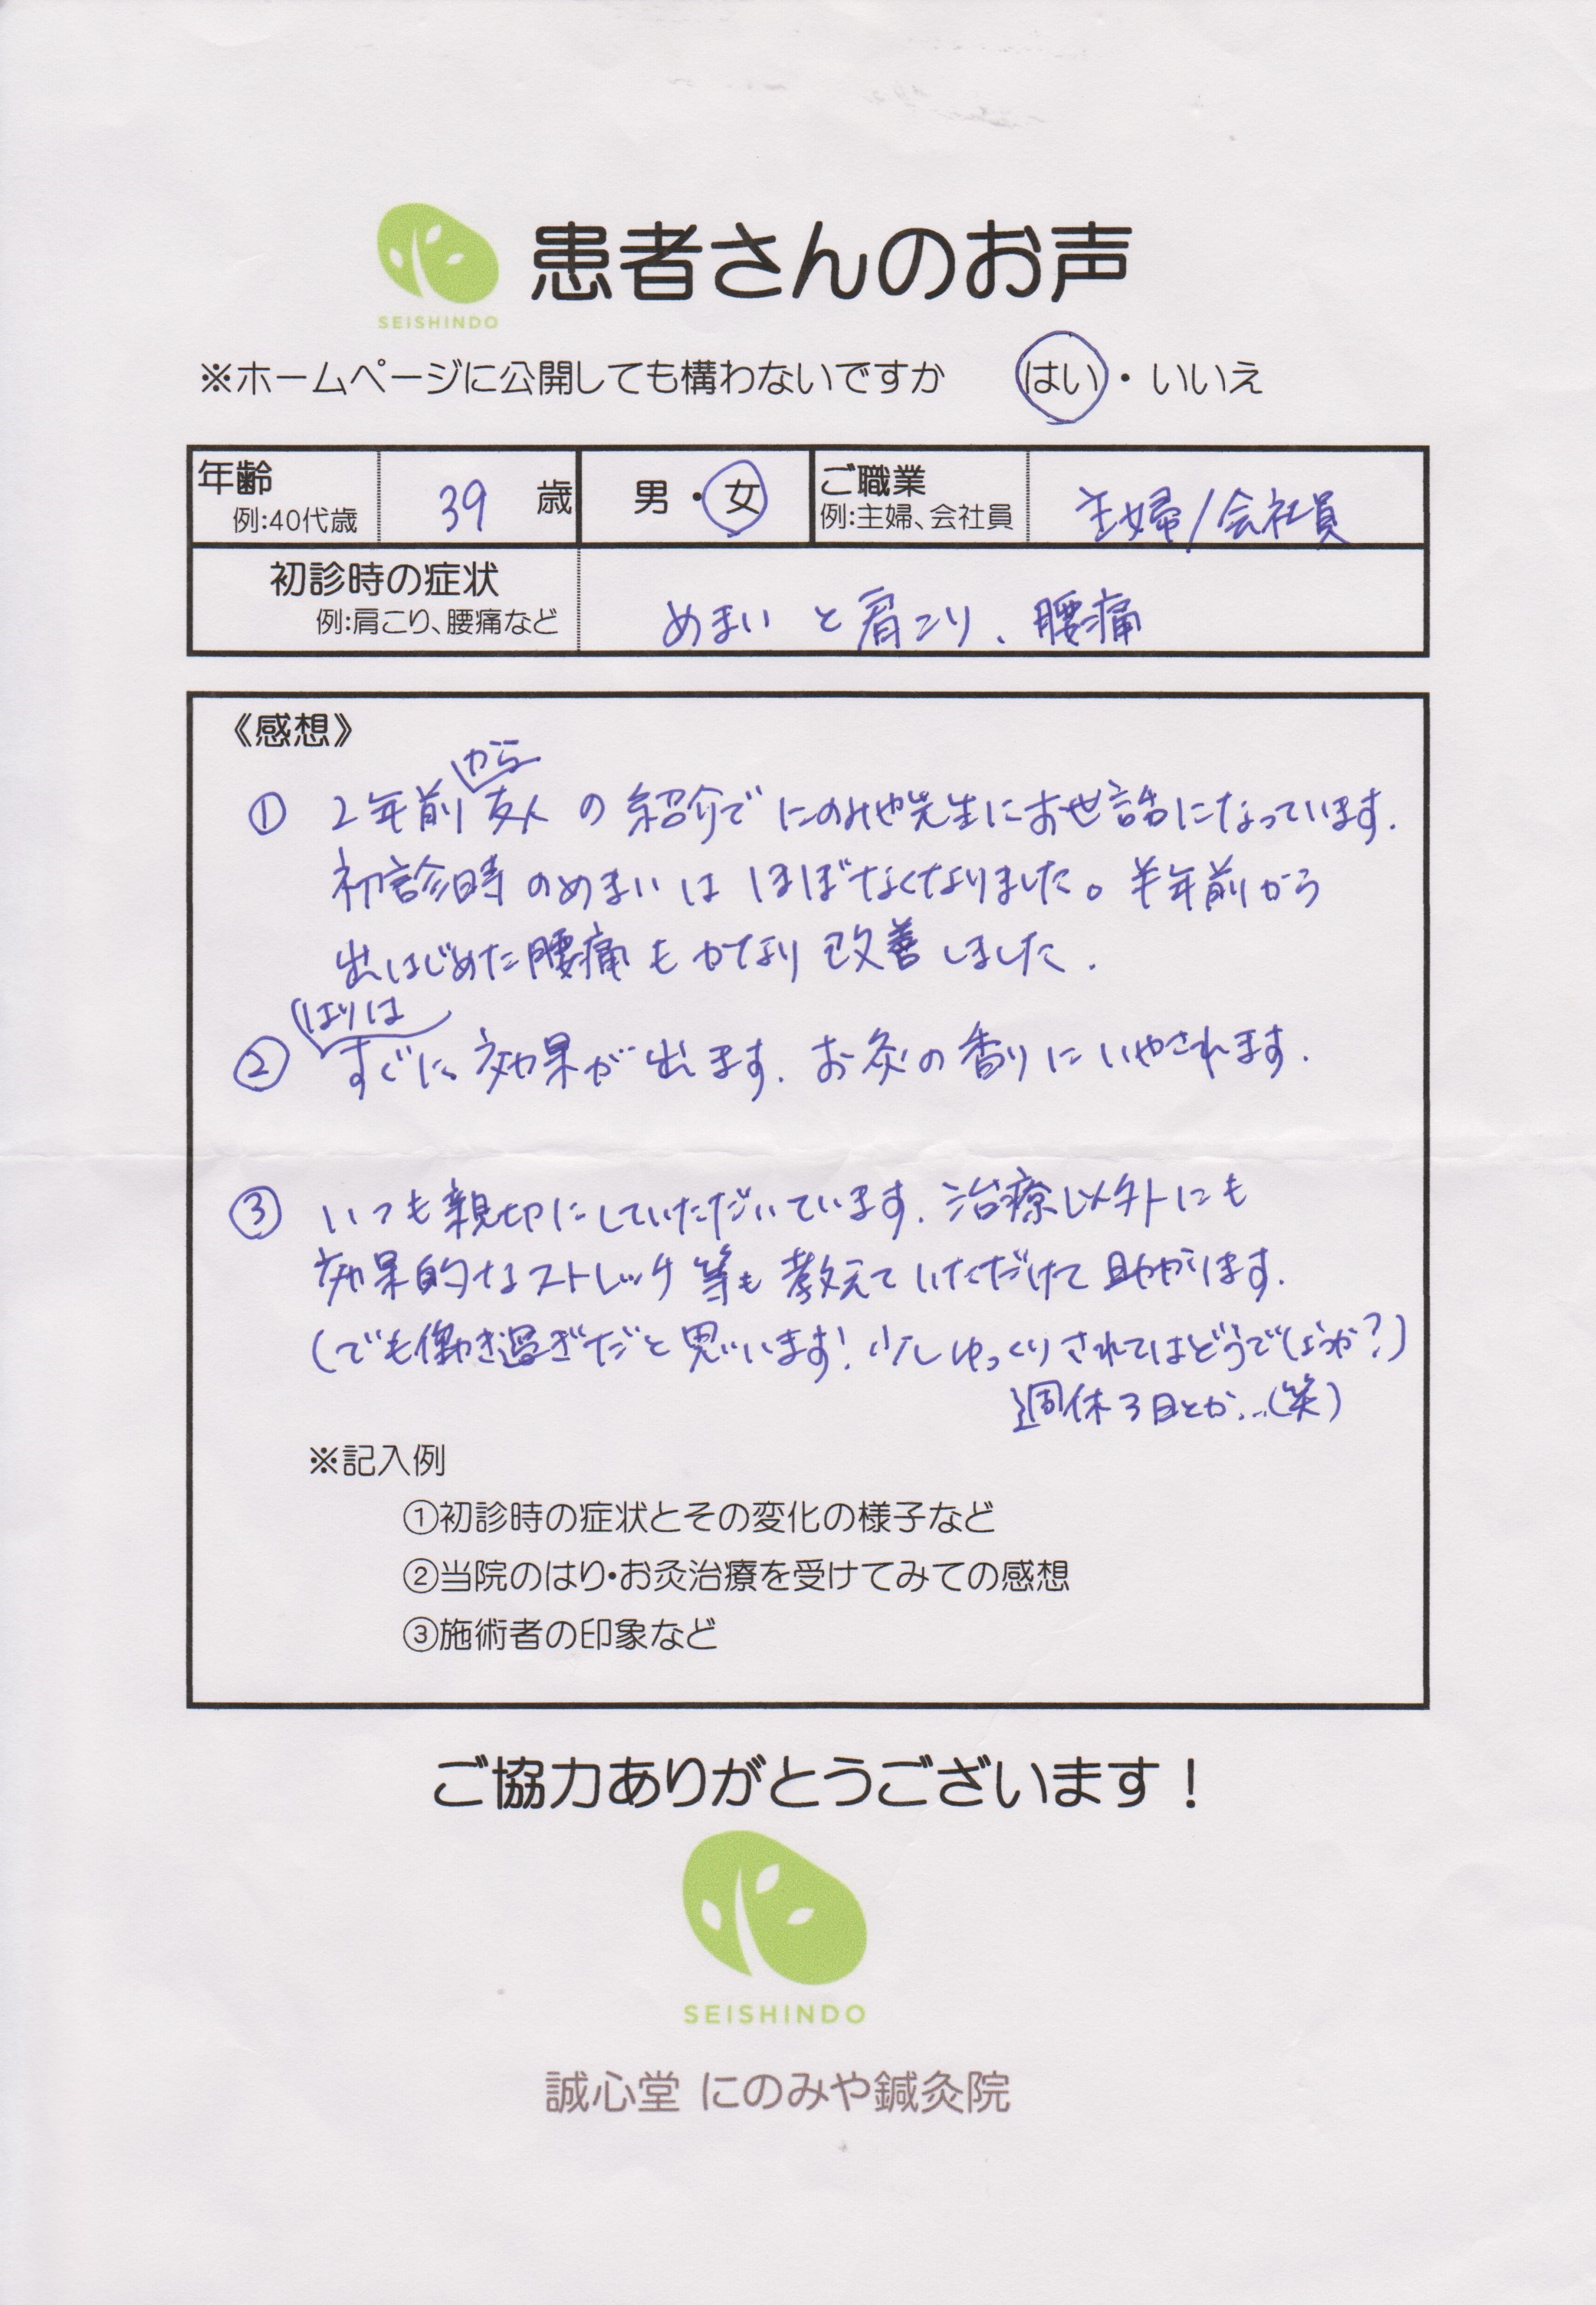 SEISHINDO
患者さんのお声
※ホームページに公開しても構わないですか はい・いいえ
年齢 例:40代歳 39 歳 男・女 ご職業 例:主婦、会社員 主婦/会社員
初診時の症状 例:肩こり、腰痛など めまいと肩こり、腰痛
《感想》
① 2年前から友人の紹介でにのみや先生にお世話になっています.
初診時のめまいはほぼなくなりました。半年前から
出はじめた腰痛もかなり改善しました.
② はりはすぐに効果が出ます.お灸の香りにいやされます.
③ いつも親切にしていただいています.治療以外にも
効果的なストレッチ等も教えていただけて助かります.
(でも働き過ぎだと思います!少しゆっくりされてはどうでしょうか?)
週休3日とか...(笑)
※記入例
①初診時の症状とその変化の様子など
②当院のはり・お灸治療を受けてみての感想
③施術者の印象など
ご協力ありがとうございます!
SEISHINDO
誠心堂 にのみや鍼灸院